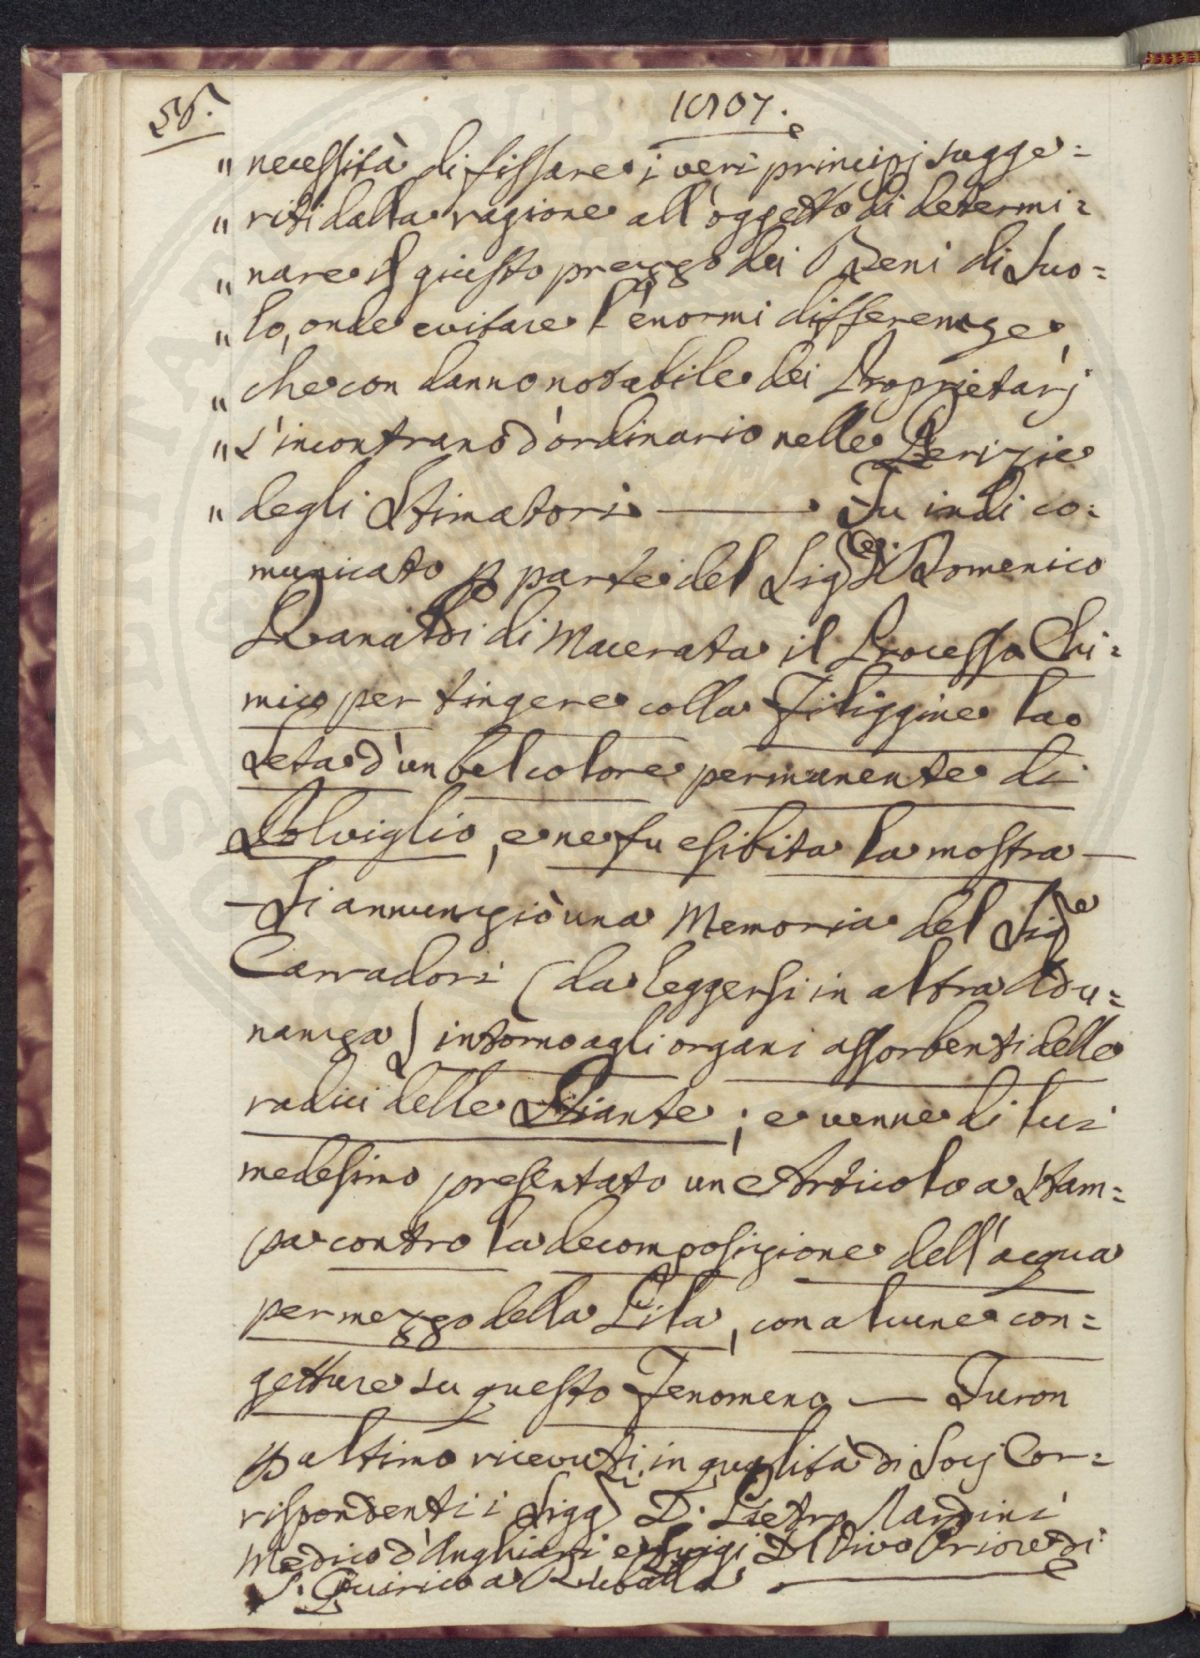 56.
1807.
" necessità di fissare i veri principj sugge=
" riti dalla ragione all'oggetto di determi=
" nare il giusto prezzo dei Beni di Suo=
" lo, onde evitare l'enormi differenze,
" che con danno notabile dei Proprietarj
" s'incontrano d'ordinario nelle Perizie
" degli Stimatori — Fu indi co=
municato p parte del Sig.e D. Domenico
Ranaldi di Macerata il Processo Chi=
mico per tingere colla Filiggine la
Seta d'un bel colore permanente di
Solviglio, e ne fu esibita la mostra —
— Si annunziò una Memoria del Sige
Carradori (da leggersi in altra Adu=
nanza) intorno agli organi assorbenti delle
radici delle Piante; e venne di lui
medesimo presentato un Articolo a Stam=
pa contro la decomposizione dell'acqua
per mezzo della Pila, con alcune con=
getture su questo Fenomeno — Furon
p altimo ricevuti in qualità di Socj Cor=
rispondenti i Sigg.i D. Pietro Nardini
Medico d'Anghiari e Luigi Dei Priore di
S. Quirico a Ruballa